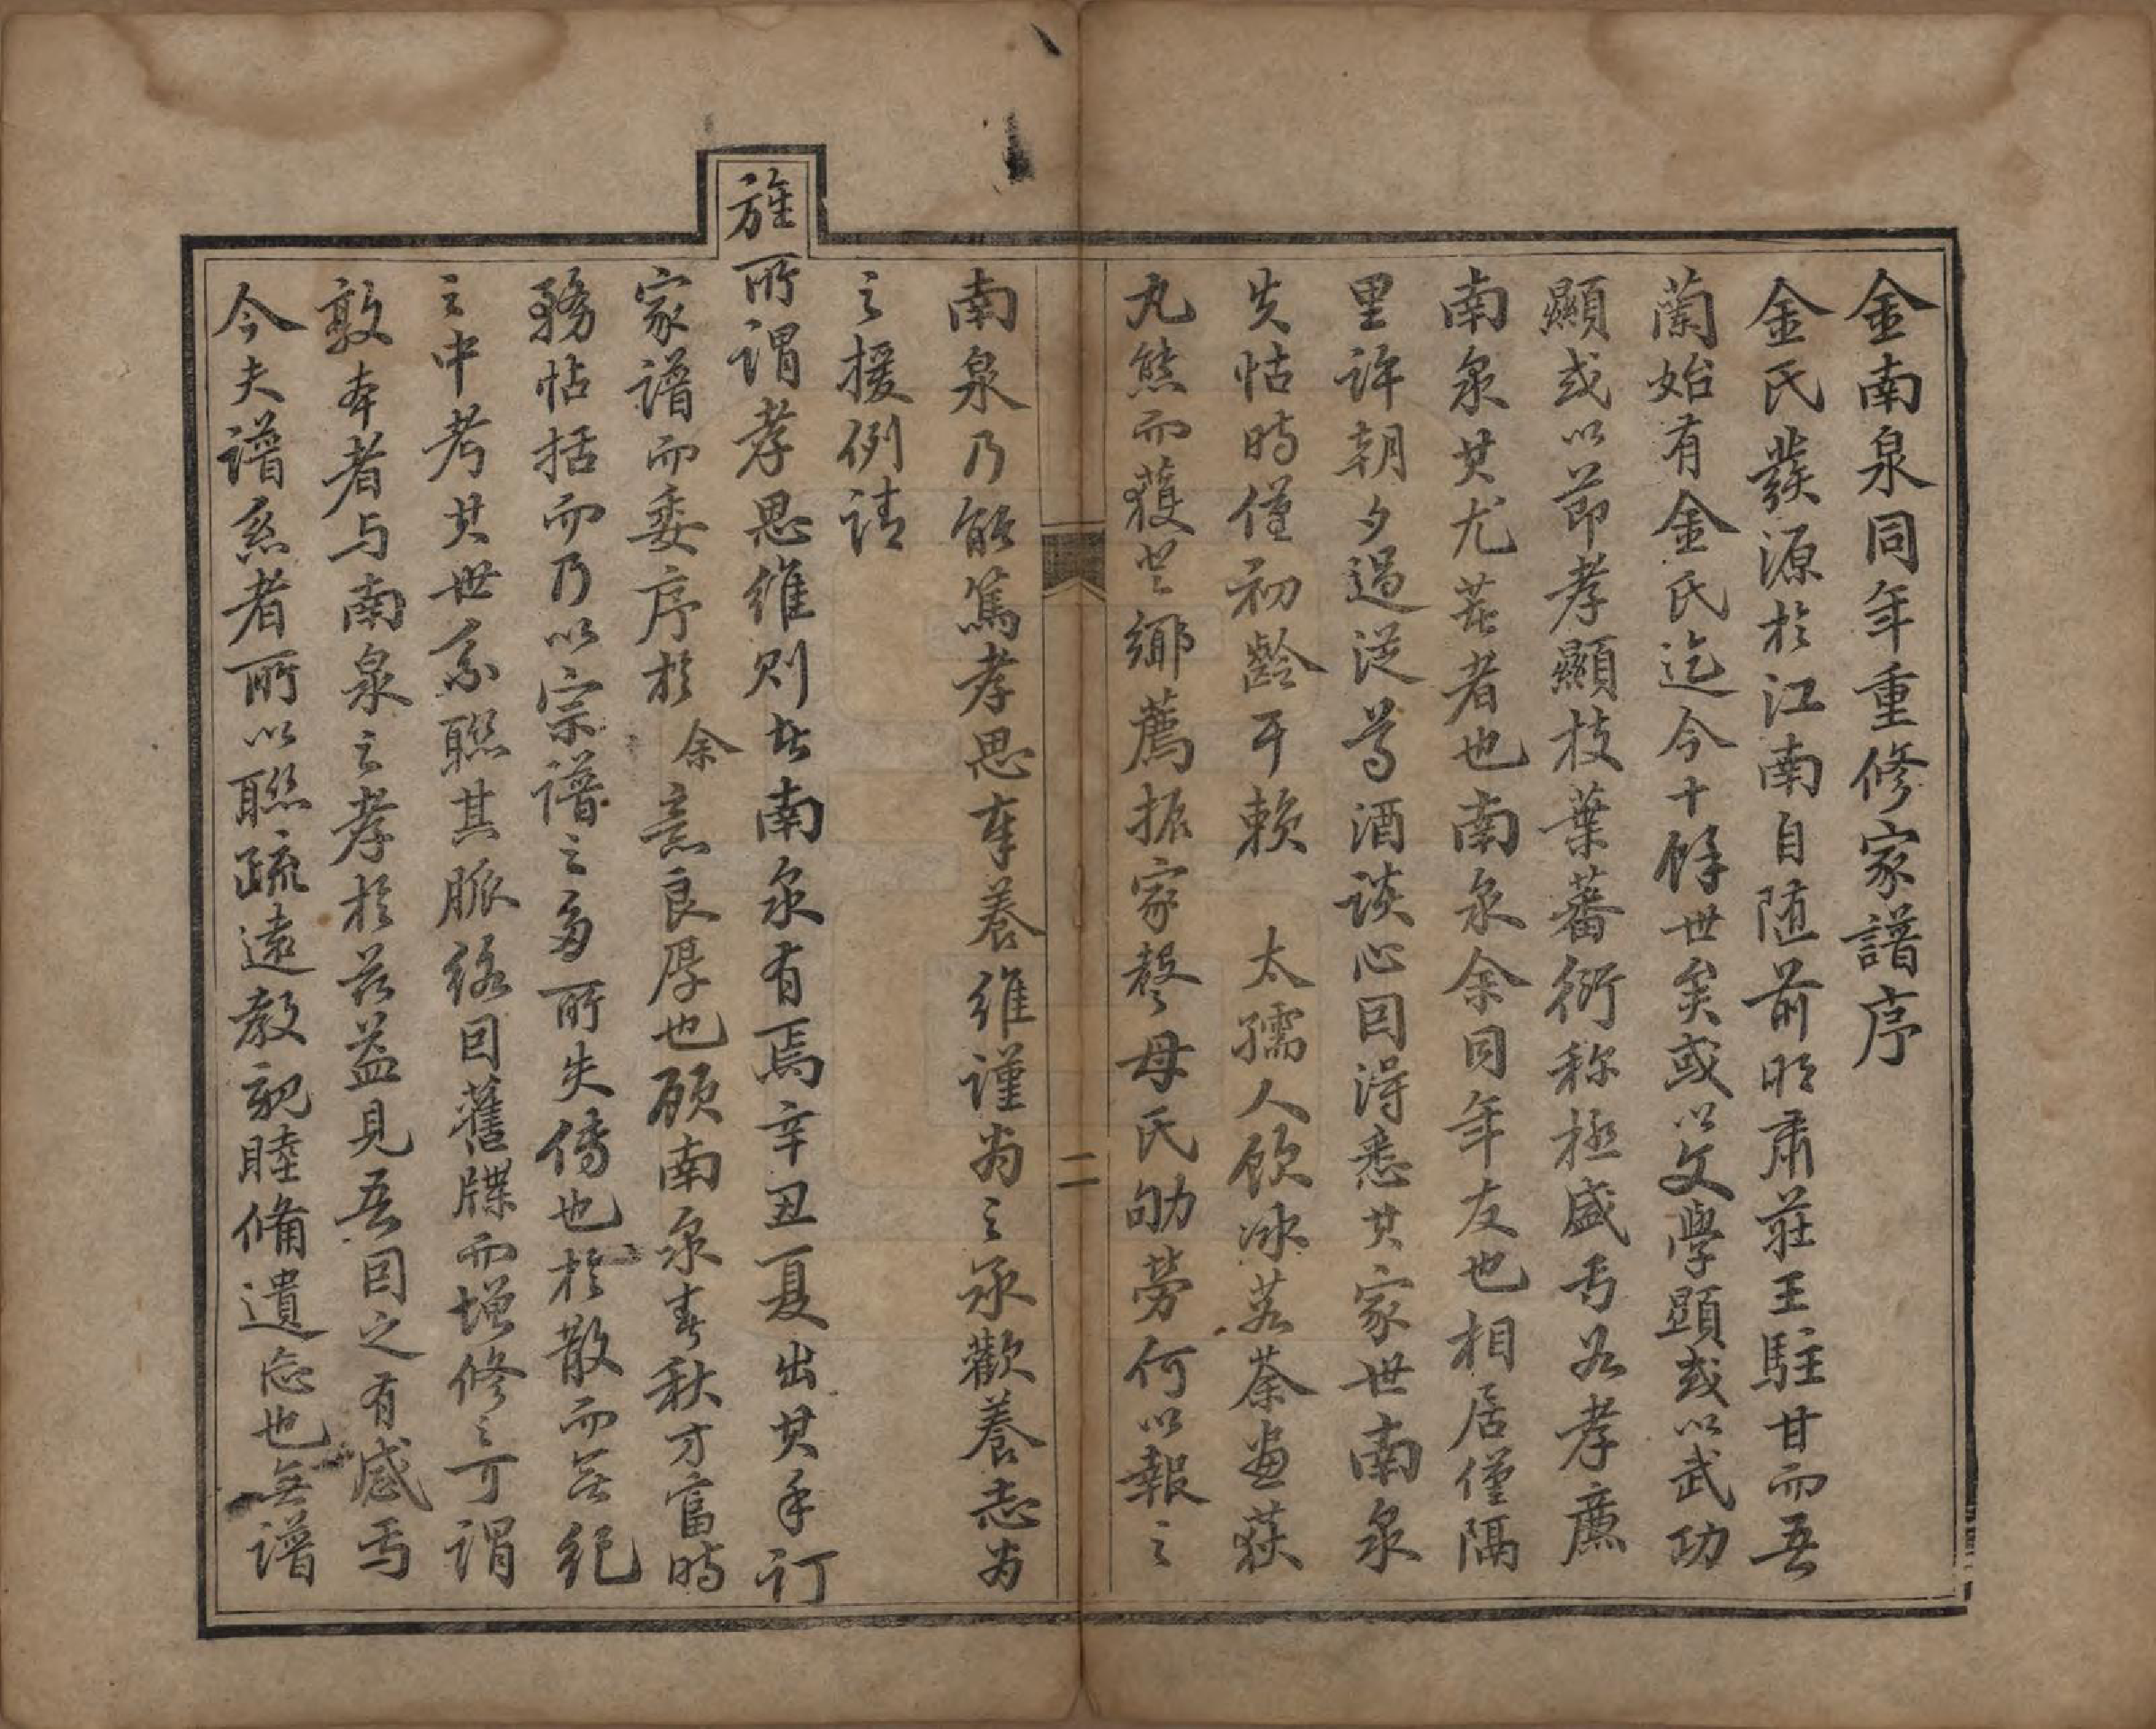 金南泉同年重修家譜序
金氏發源於江南自随前明肃莊王駐甘而吾
蘭始有金氏迄今十餘世矣或以文學顕或以武功
顯或以節孝顯枝葉蕃衍称極盛焉若孝廉
南泉其尤著者也南泉余同年友也相居僅隔
里許朝夕過從尊酒談心因得悉其家世南泉
失怙時僅初齡耳賴　太孺人飲冰茹荼畫荻
丸熊而獲登鄉薦振家聲母氏劬勞何以報之
二
南泉乃能篤孝思奉養維謹為之承歡養志為
之援例請
旌所謂孝思維則者南泉有焉辛丑夏出其手訂
家譜而委序於余意良厚也顾南泉春秋方富時
務帖括而乃以宗譜之多所失傳也於散而無紀
之中考其世系聯其脈絡因舊牒而增修之可謂
敦本者与南泉之孝於茲益見吾因之有感焉
今夫譜系者所以聯疏遠教親睦備遺忘也無譜